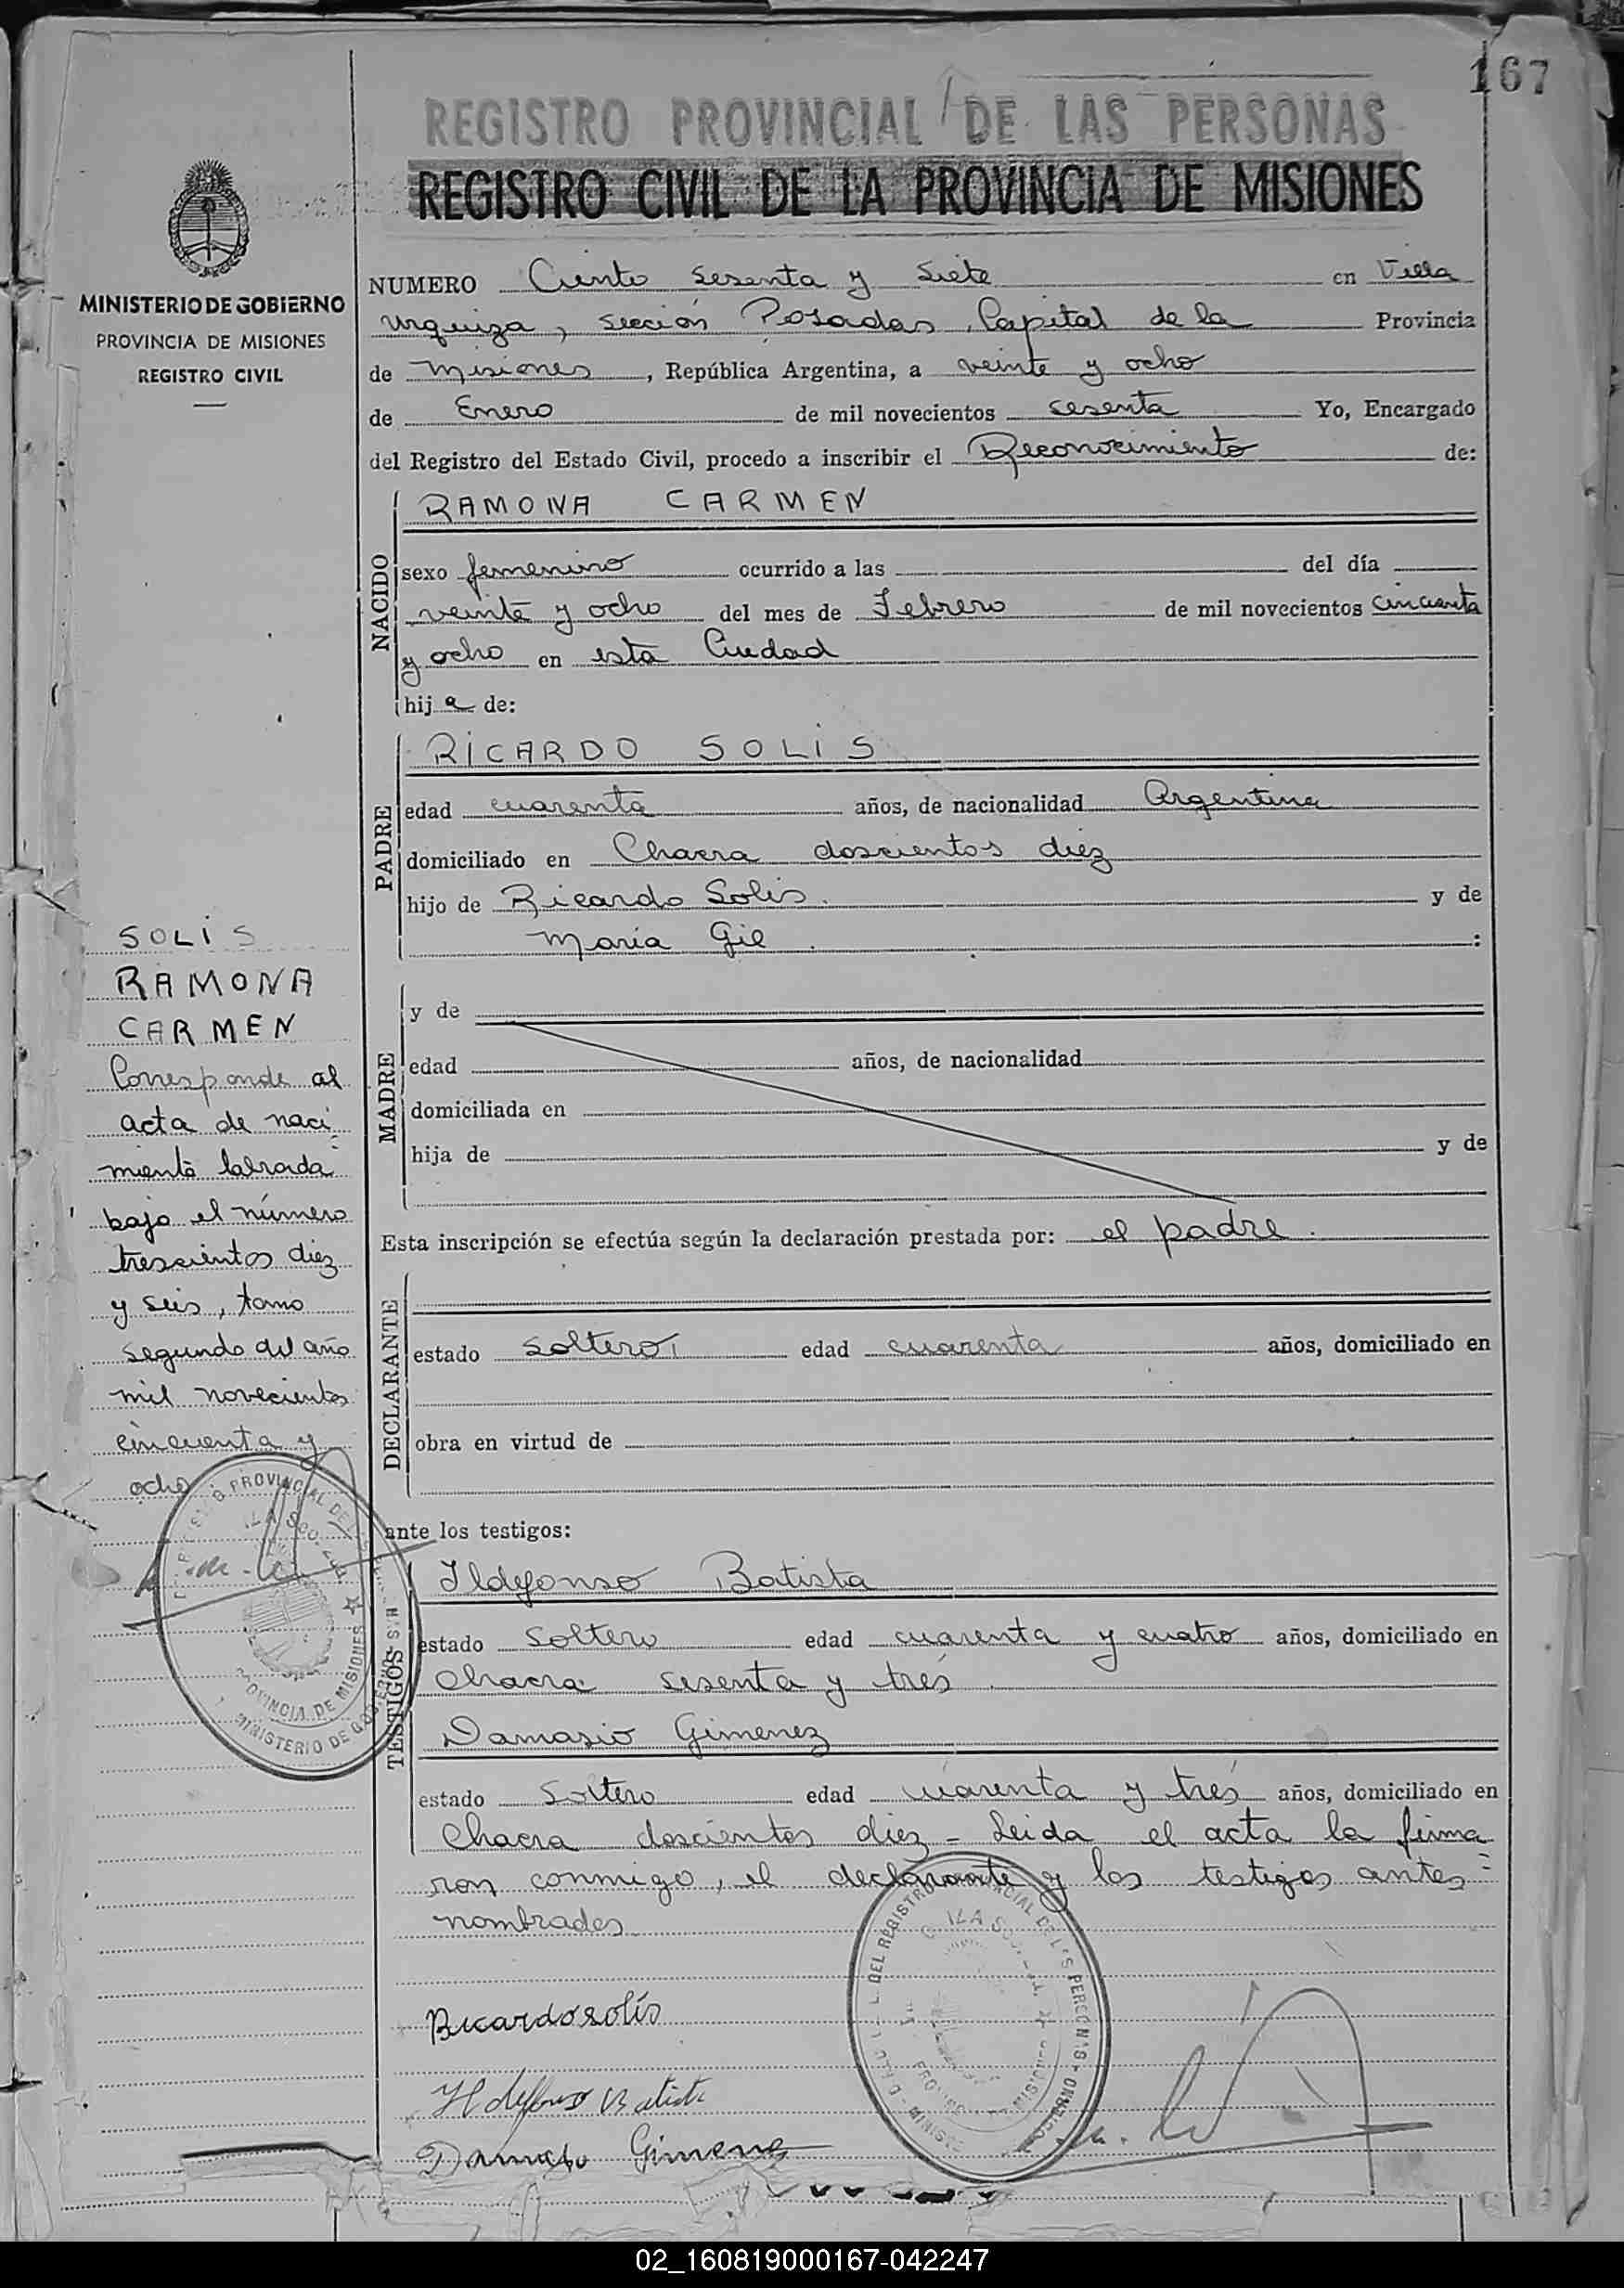 167
REGISTRO PROVINCIAL DE LAS PERSONAS
REGISTRO CIVIL DE LA PROVINCIA DE MISIONES
MINISTERIO DE GOBIERNO
PROVINCIA DE MISIONES
REGISTRO CIVIL
NUMERO Ciento sesenta y siete en Villa
Urquiza, sección Posadas, Capital de la Provincia
de Misiones, República Argentina, a veinte y ocho
de Enero de mil novecientos sesenta Yo, Encargado
del Registro del Estado Civil, procedo a inscribir el Reconocimiento de:
NACIDO
RAMONA CARMEN
sexo femenino ocurrido a las del día
veinte y ocho del mes de Febrero de mil novecientos cincuenta
y ocho en esta Ciudad
hija de:
PADRE
RICARDO SOLIS
edad cuarenta años, de nacionalidad Argentina
domiciliado en Chacra doscientos diez
hijo de Ricardo Solis. y de
Maria Gil. :
MADRE
y de
edad años, de nacionalidad
domiciliada en
hija de y de
Esta inscripción se efectúa según la declaración prestada por: el padre.
DECLARANTE
estado soltero, edad cuarenta años, domiciliado en
obra en virtud de
ante los testigos:
TESTIGOS
Ildefonso Batista
estado soltero edad cuarenta y cuatro años, domiciliado en
Chacra sesenta y tres.
Damasio Gimenez
estado soltero edad cuarenta y tres años, domiciliado en
Chacra doscientos diez - Leida el acta la firma
ron conmigo, el declarante y los testigos antes
nombrados
Ricardo solís
Ildefonso Batista
Damasio Gimenez
SOLIS
RAMONA
CARMEN
Corresponde al
acta de naci
miento labrada
bajo el número
trescientos diez
y seis, tomo
segundo del año
mil novecientos
cincuenta y
ocho
PROVINCIAL DE
PROVINCIA DE MISIONES
MINISTERIO DE GOBIERNO
DEL REGISTRO PROVINCIAL DE LAS PERSONAS
02_160819000167-042247